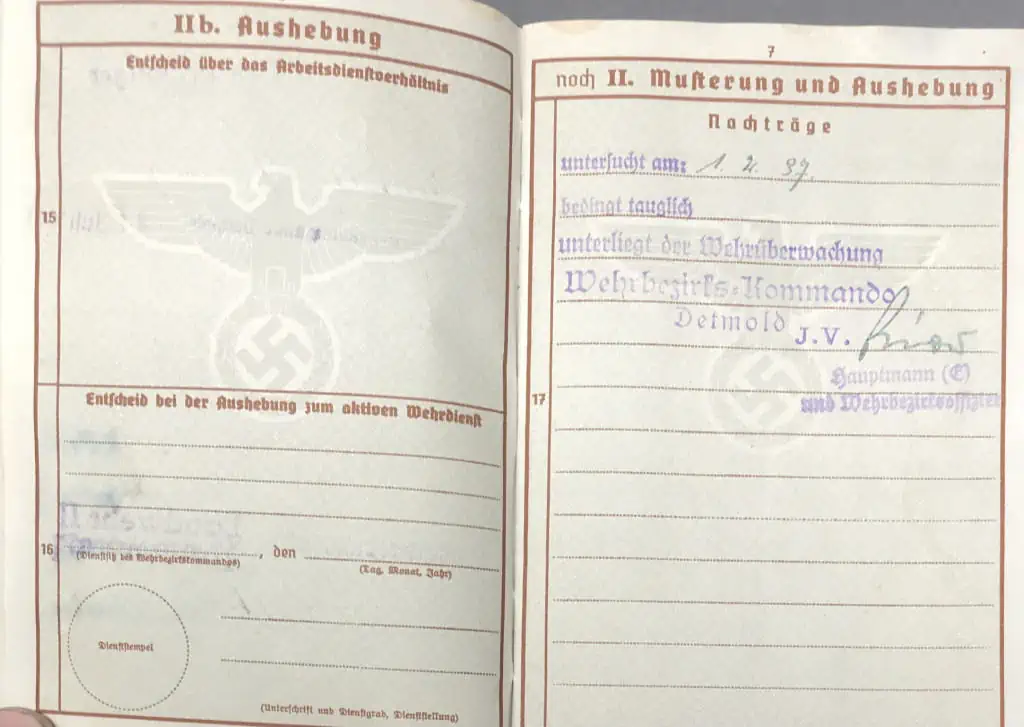 IIb. Aushebung
Entscheid über das Arbeitsdienstverhältnis
15
Entscheid bei der Aushebung zum aktiven Wehrdienst
16
, den
(Dienstsitz des Wehrbezirkskommandos)
(Tag, Monat, Jahr)
Dienststempel
(Unterschrift und Dienstgrad, Dienststellung)
7
noch II. Musterung und Aushebung
Nachträge
untersucht am: 1. 2. 37.
bedingt tauglich
unterliegt der Wehrüberwachung
Wehrbezirks-Kommando
Detmold J.V.
Hauptmann (E)
17
und Wehrbezirksoffizier